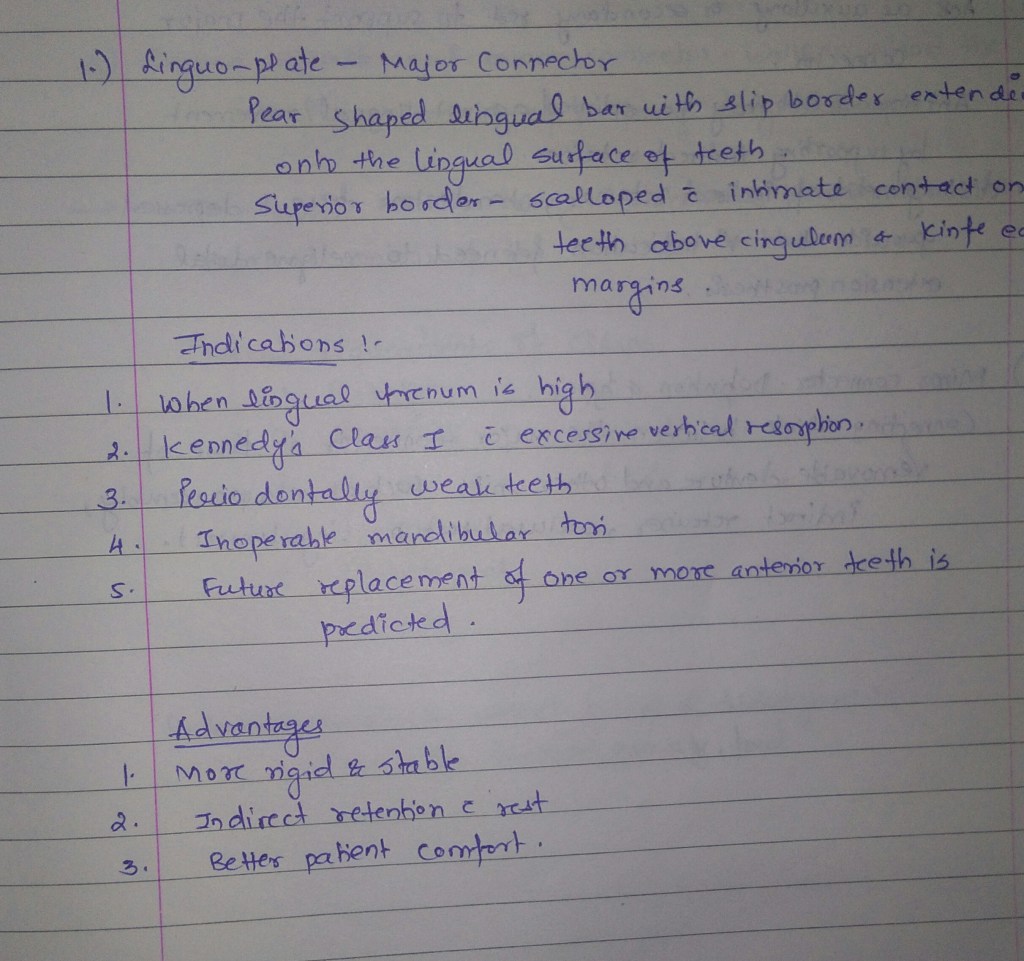 1.) Linguo-plate - Major Connector
Pear shaped lingual bar with slip border extende
onto the lingual surface of teeth.
Superior border - scalloped c̄ intimate contact on
teeth above cingulum & kinfe ed
margins.
Indications :-
1. When lingual frenum is high
2. Kennedy's Class I c̄ excessive vertical resorption.
3. Periodontally weak teeth
4. Inoperable mandibular tori
5. Future replacement of one or more anterior teeth is
predicted.
Advantages
1. More rigid & stable
2. Indirect retention c̄ rest
3. Better patient comfort.